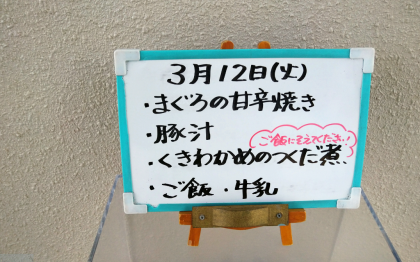 3月12日(火)
・まぐろの甘辛焼き
・豚汁
ご飯にそえてください
・くきわかめのつくだ煮
・ご飯・牛乳